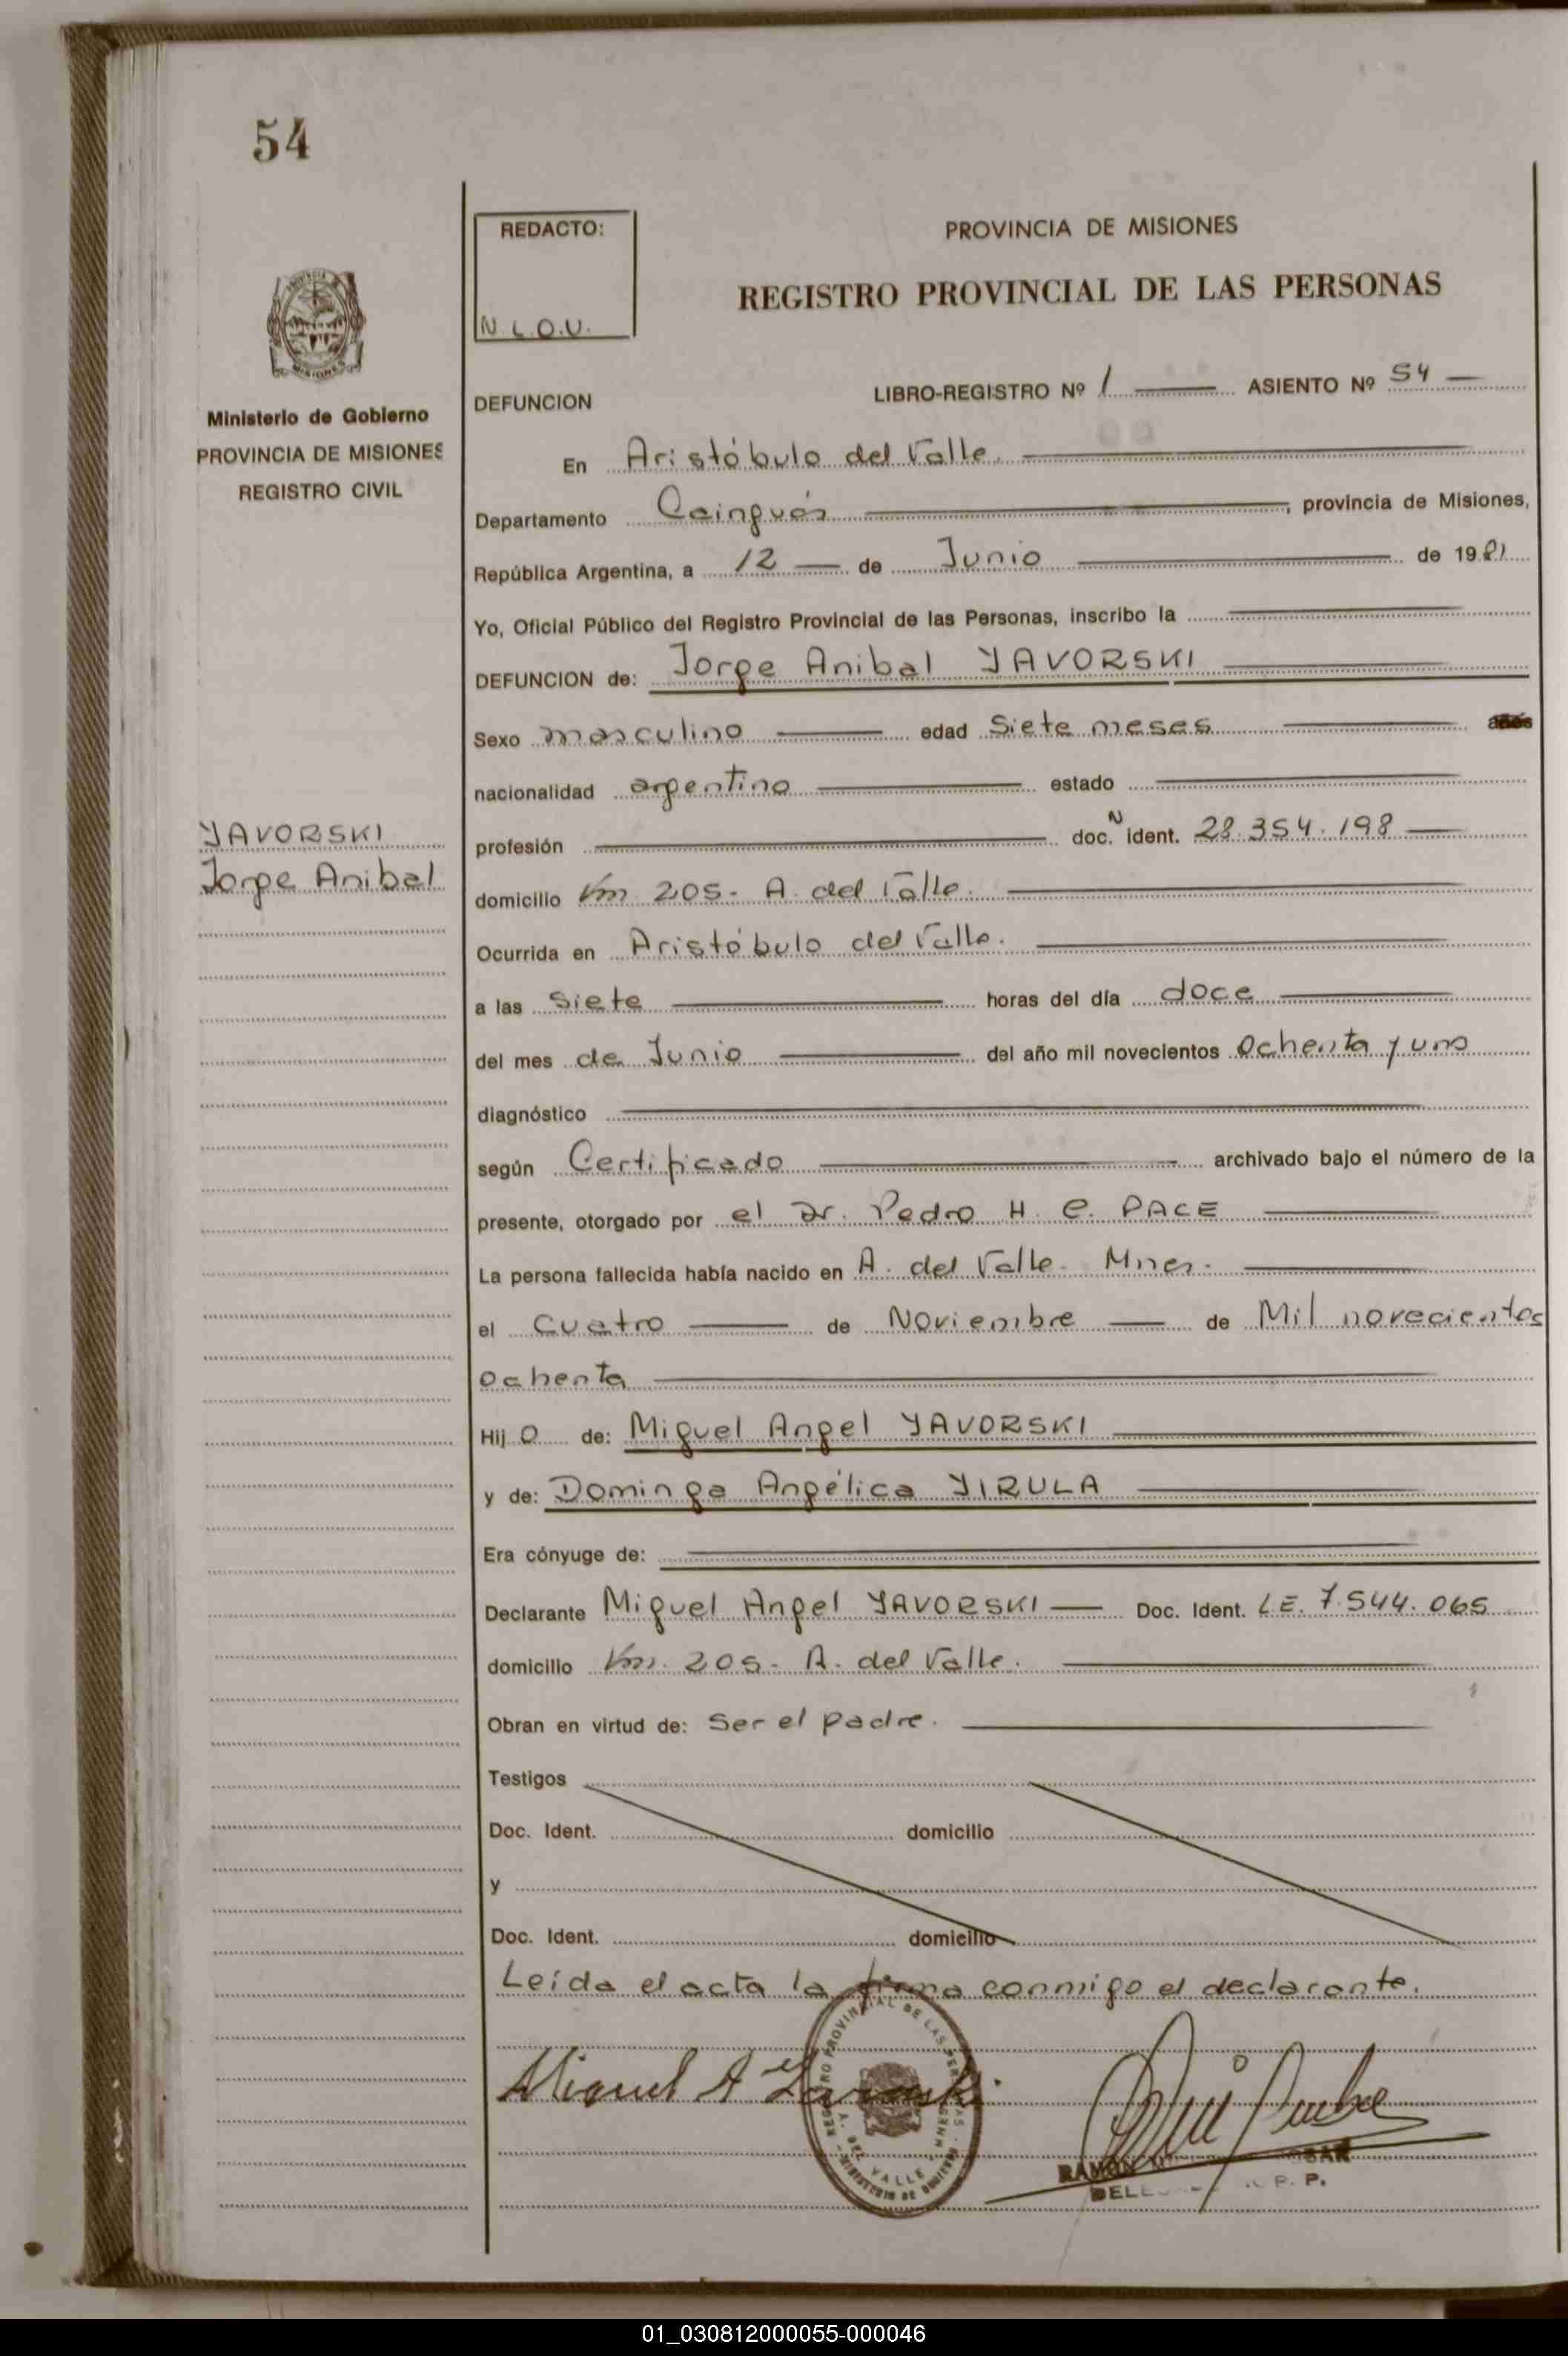 54
REDACTO:
N.L.O.U.
PROVINCIA DE MISIONES
REGISTRO PROVINCIAL DE LAS PERSONAS
Ministerio de Gobierno
PROVINCIA DE MISIONES
REGISTRO CIVIL
DEFUNCION LIBRO-REGISTRO Nº 1 ASIENTO Nº 54
En Aristóbulo del Valle.
Departamento Cainguás, provincia de Misiones,
República Argentina, a 12 de Junio de 1981
Yo, Oficial Público del Registro Provincial de las Personas, inscribo la
DEFUNCION de: Jorge Anibal YAVORSKI
Sexo masculino edad Siete meses años
nacionalidad argentino estado
YAVORSKI
Jorge Anibal
profesión doc. N ident. 28.354.198
domicilio Km 205- A. del Valle.
Ocurrida en Aristóbulo del Valle.
a las Siete horas del día doce
del mes de Junio del año mil novecientos Ochenta y uno
diagnóstico
según Certificado archivado bajo el número de la
presente, otorgado por el Dr. Pedro H. C. PACE
La persona fallecida había nacido en A. del Valle. Mnes.
el Cuatro de Noviembre de Mil novecientos
ochenta
Hij o de: Miguel Angel YAVORSKI
y de: Dominga Angélica YIRULA
Era cónyuge de:
Declarante Miguel Angel YAVORSKI Doc. Ident. L.E. 7.544.065
domicilio Km. 205- A. del Valle.
Obran en virtud de: Ser el padre.
Testigos
Doc. Ident. domicilio
y
Doc. Ident. domicilio
Leída el acta la firma conmigo el declarante.
Miguel A Yavorski
REGISTRO PROVINCIAL DE LAS PERSONAS
A. DEL VALLE - MNES
MINISTERIO DE GOBIERNO
RAMON
P. P.
01_030812000055-000046